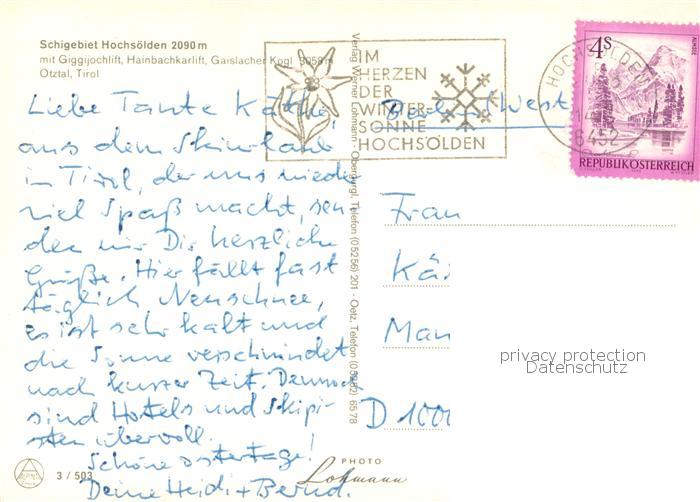 Schigebiet Hochsölden 2090 m
mit Giggijochlift, Hainbachkarlift, Gaislacher Kogl 3058 m
Ötztal, Tirol
Liebe Tante Käthe,
aus dem Skiurlaub
in Tirol, der uns wieder
viel Spaß macht, sen-
den wir Dir herzliche
Grüße. Hier fällt fast
täglich Neuschnee,
es ist sehr kalt und
die Sonne verschwindet
nach kurzer Zeit. Dennoch
sind Hotels und Skipi-
sten übervoll.
Schöne Ostertage!
Deine Heidi + Bernd.
3 / 503
Verlag Werner Lohmann - Obergurgl, Telefon (05256) 201 - Oetz, Telefon (05252) 6578
PHOTO
Lohmann
IM
HERZEN
DER
WINTER=
SONNE
HOCHSÖLDEN
HOCHSÖLDEN
6452
4S
REPUBLIK ÖSTERREICH
Berlin (West)
Frau
Kä
Man
D 1000
privacy protection
Datenschutz